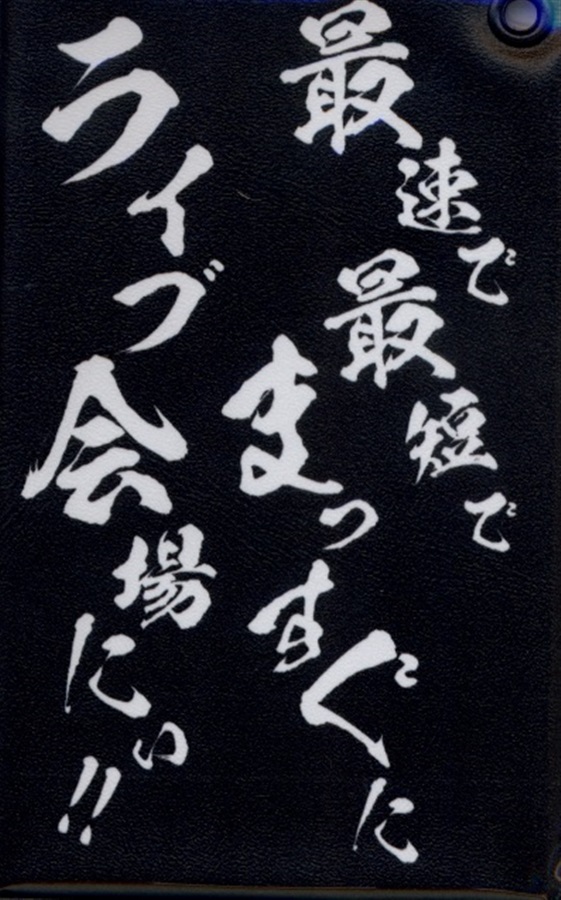 最速で最短で
まっすぐに
ライブ会場にぃ!!